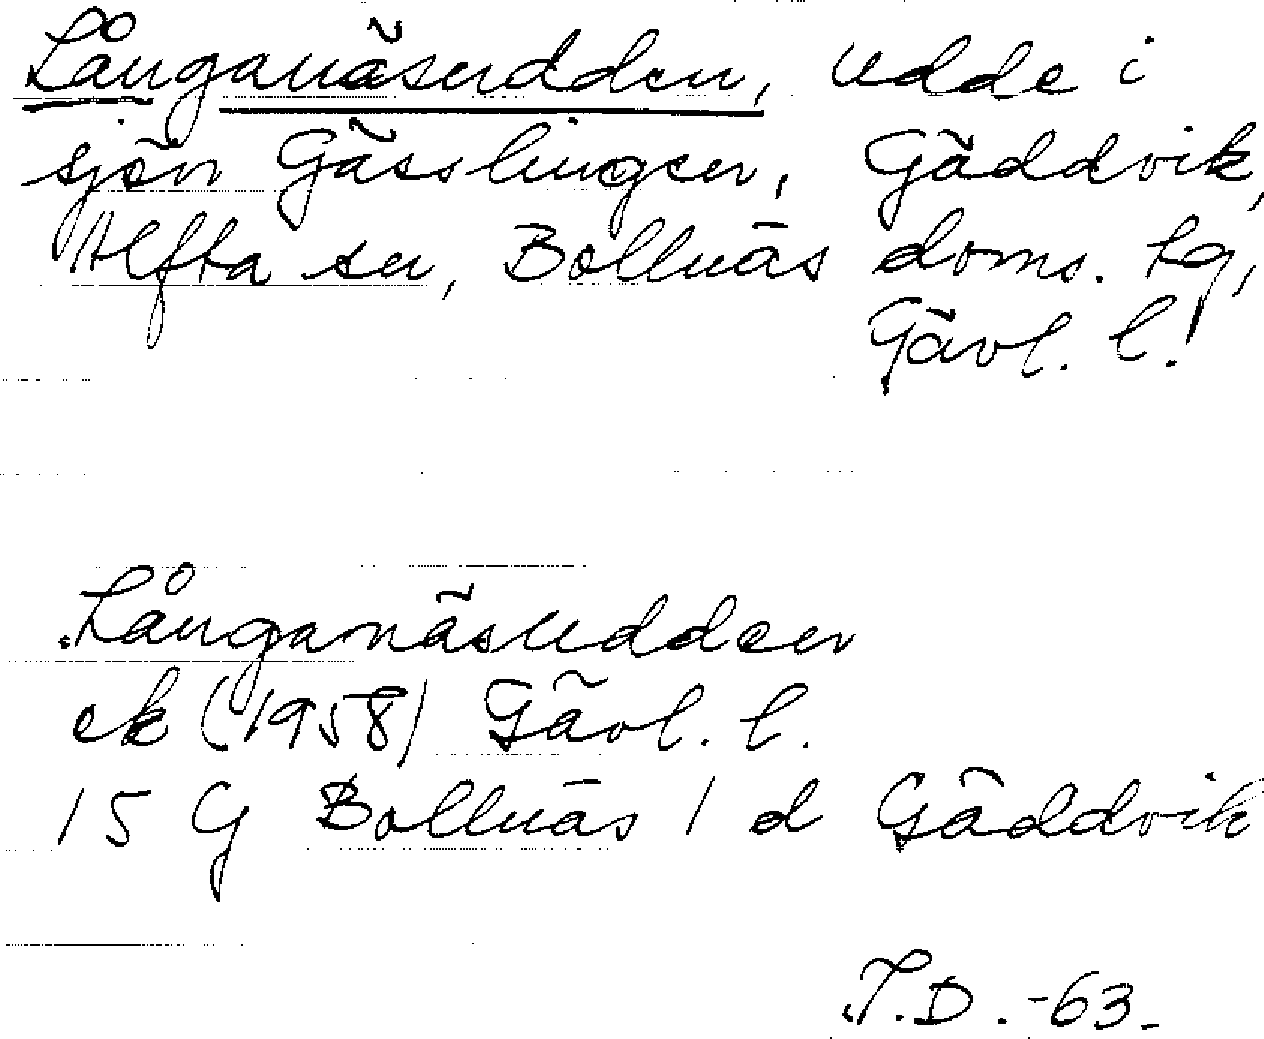 Långanäsudden, udde i
sjön Gässlingen, Gäddvik,
Alfta sn, Bollnäs doms. tg,
Gävl. l.
Långanäsudden
ek (1958) Gävl. l.
15 G Bollnäs 1 d Gäddvik
T.D. -63-